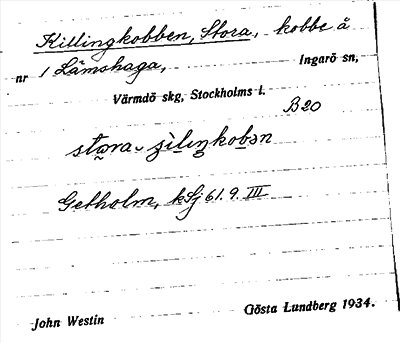 Killingkobben, Stora, kobbe å
nr 1 Låmshaga, Ingarö sn,
Värmdö skg, Stockholms l.
B20
stora
Getholm, kSj 61.9.III
John Westin Gösta Lundberg 1934.